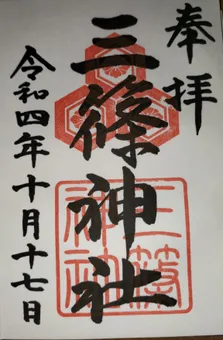 奉拝
三篠神社
三篠神社
令和四年十月十七日